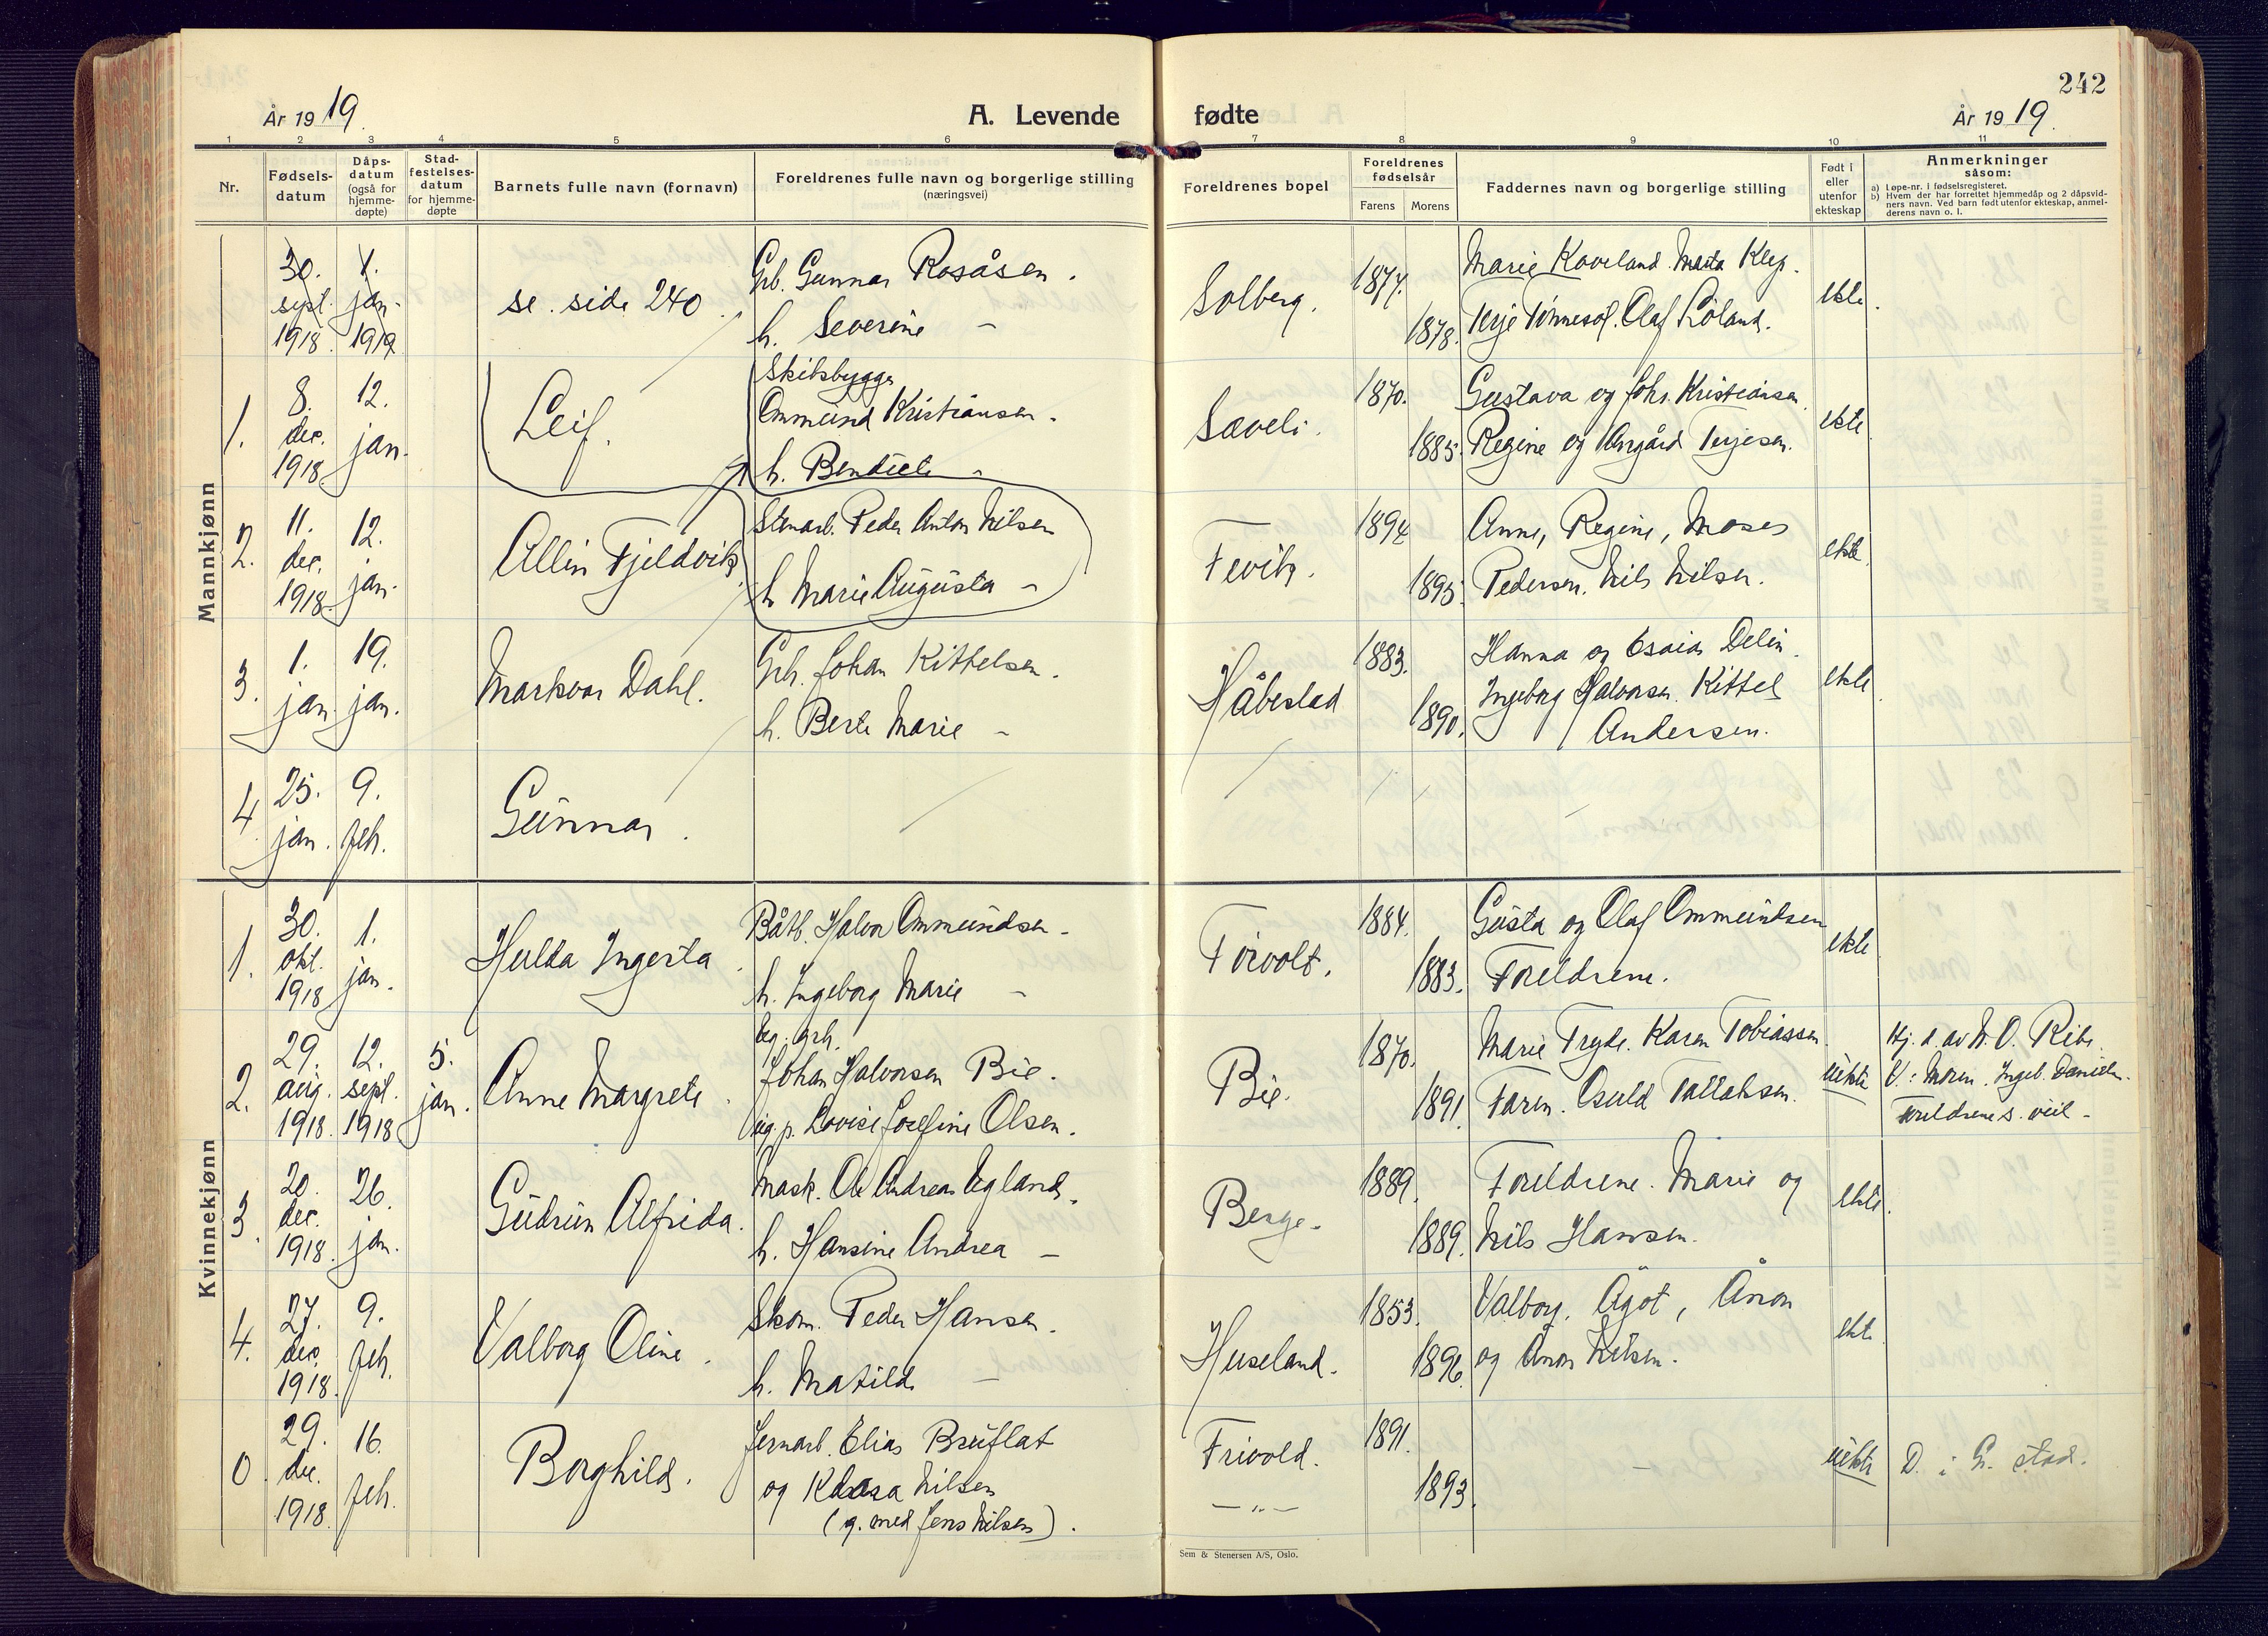 242
År 1919.
A. Levende
fødte
År 1919.
1 2 3 4 5 6 7 8 9 10 11
Nr.
Fødsels-
datum
Dåps-
datum
(også for
hjemme-
døpte)
Stad-
festelses-
datum
for hjemme-
døpte
Barnets fulle navn (fornavn)
Foreldrenes fulle navn og borgerlige stilling
(næringsvei)
Foreldrenes bopel
Foreldrenes
fødselsår
Farens
Morens
Faddernes navn og borgerlige stilling
Født i
eller
utenfor
ekteskap
Anmerkninger
såsom:
a) Løpe-nr. i fødselsregisteret.
b) Hvem der har forrettet hjemmedåp og 2 dåpsvid-
ners navn. Ved barn født utenfor ekteskap, anmel-
derens navn o. l.
Mannkjønn
30.
sept.
1918
1.
jan.
1919
se. side 240
Grb. Gunnar Rosåsen.
h. Severine —
Solberg.
1874.
1878.
Marie Kaveland. Marta Klep.
Terje Tønnesøl. Olaf Løland.
ekte.
1.
8.
dec.
1918
12.
jan.
Leif.
Skibsbygger
Ommund Kristiansen.
h. Bendicte —
Sæveli.
1870.
1885.
Gustava og Johs. Kristiansen.
Regine og Asgård Terjesen.
ekte
2.
11.
dec.
1918
12.
jan.
Allin Fjeldvik
Stenarb. Peder Anton Nilsen
h. Marie Augusta —
Fevik.
1894
1895.
Anne, Regine, Moses
Pedersen. Nils Nilsen.
ekte.
3.
1.
jan.
19.
jan.
Markvar Dahl.
Grb. Johan Kittelsen.
h. Berte Marie —
Håbestad
1883.
1890.
Hanna og Esaias Delin.
Ingeborg Halvorsen. Kittel
Andersen.
ekte
4
25.
jan.
9.
feb.
Gunnar.
Kvinnekjønn
1.
30.
okt.
1918
1.
jan.
Hulda Ingerta.
Båtb. Halvor Ommundsen.
h. Ingeborg Marie —
Førvolt.
1884.
1883.
Gusta og Olaf Ommundsen
Foreldrene.
ekte
2.
29.
aug.
1918.
12.
sept.
1918
5.
jan.
Anne Margrete.
Ug. grb.
Johan Halvorsen Bie.
Ug. p. Lovise Josefine Olsen.
Bie.
1870.
1891.
Marie Tryde. Karen Tobiassen
Faren. Osuld Tallaksen.
uekte
Hj. d. av N. O. Ribe.
V: Moren. Ingeb. Danieln.
Foreldrene s. veil —
3.
20.
dec.
1918
26.
jan.
Gudrun Alfrida.
Mask. Ole Andreas Egland.
h. Hansine Andrea —
Berge.
1889.
1889.
Foreldrene. Marie og
Nils Hansen.
ekte.
4.
27.
dec.
1918.
9.
feb.
Valborg Oline.
Skom. Peder Hansen.
h. Matilde —
Huseland.
1853.
1896.
Valborg, Ågot, Anon
og Anon Nilsen.
ekte
0
29.
dec.
1918.
16.
feb.
Borghild.
Jernarb. Elias Bruflat
og Klara Nilsen
(g. med Jens Nilsen).
Frivold.
— " —
1891.
1893.
—
uekte
D. i Gr. stad.
Sem & Stenersen A/S, Oslo.